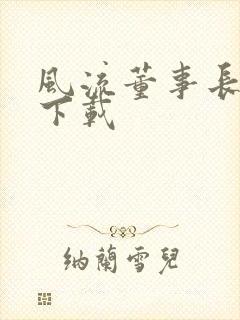 風流董事長
下載
納蘭雪兒